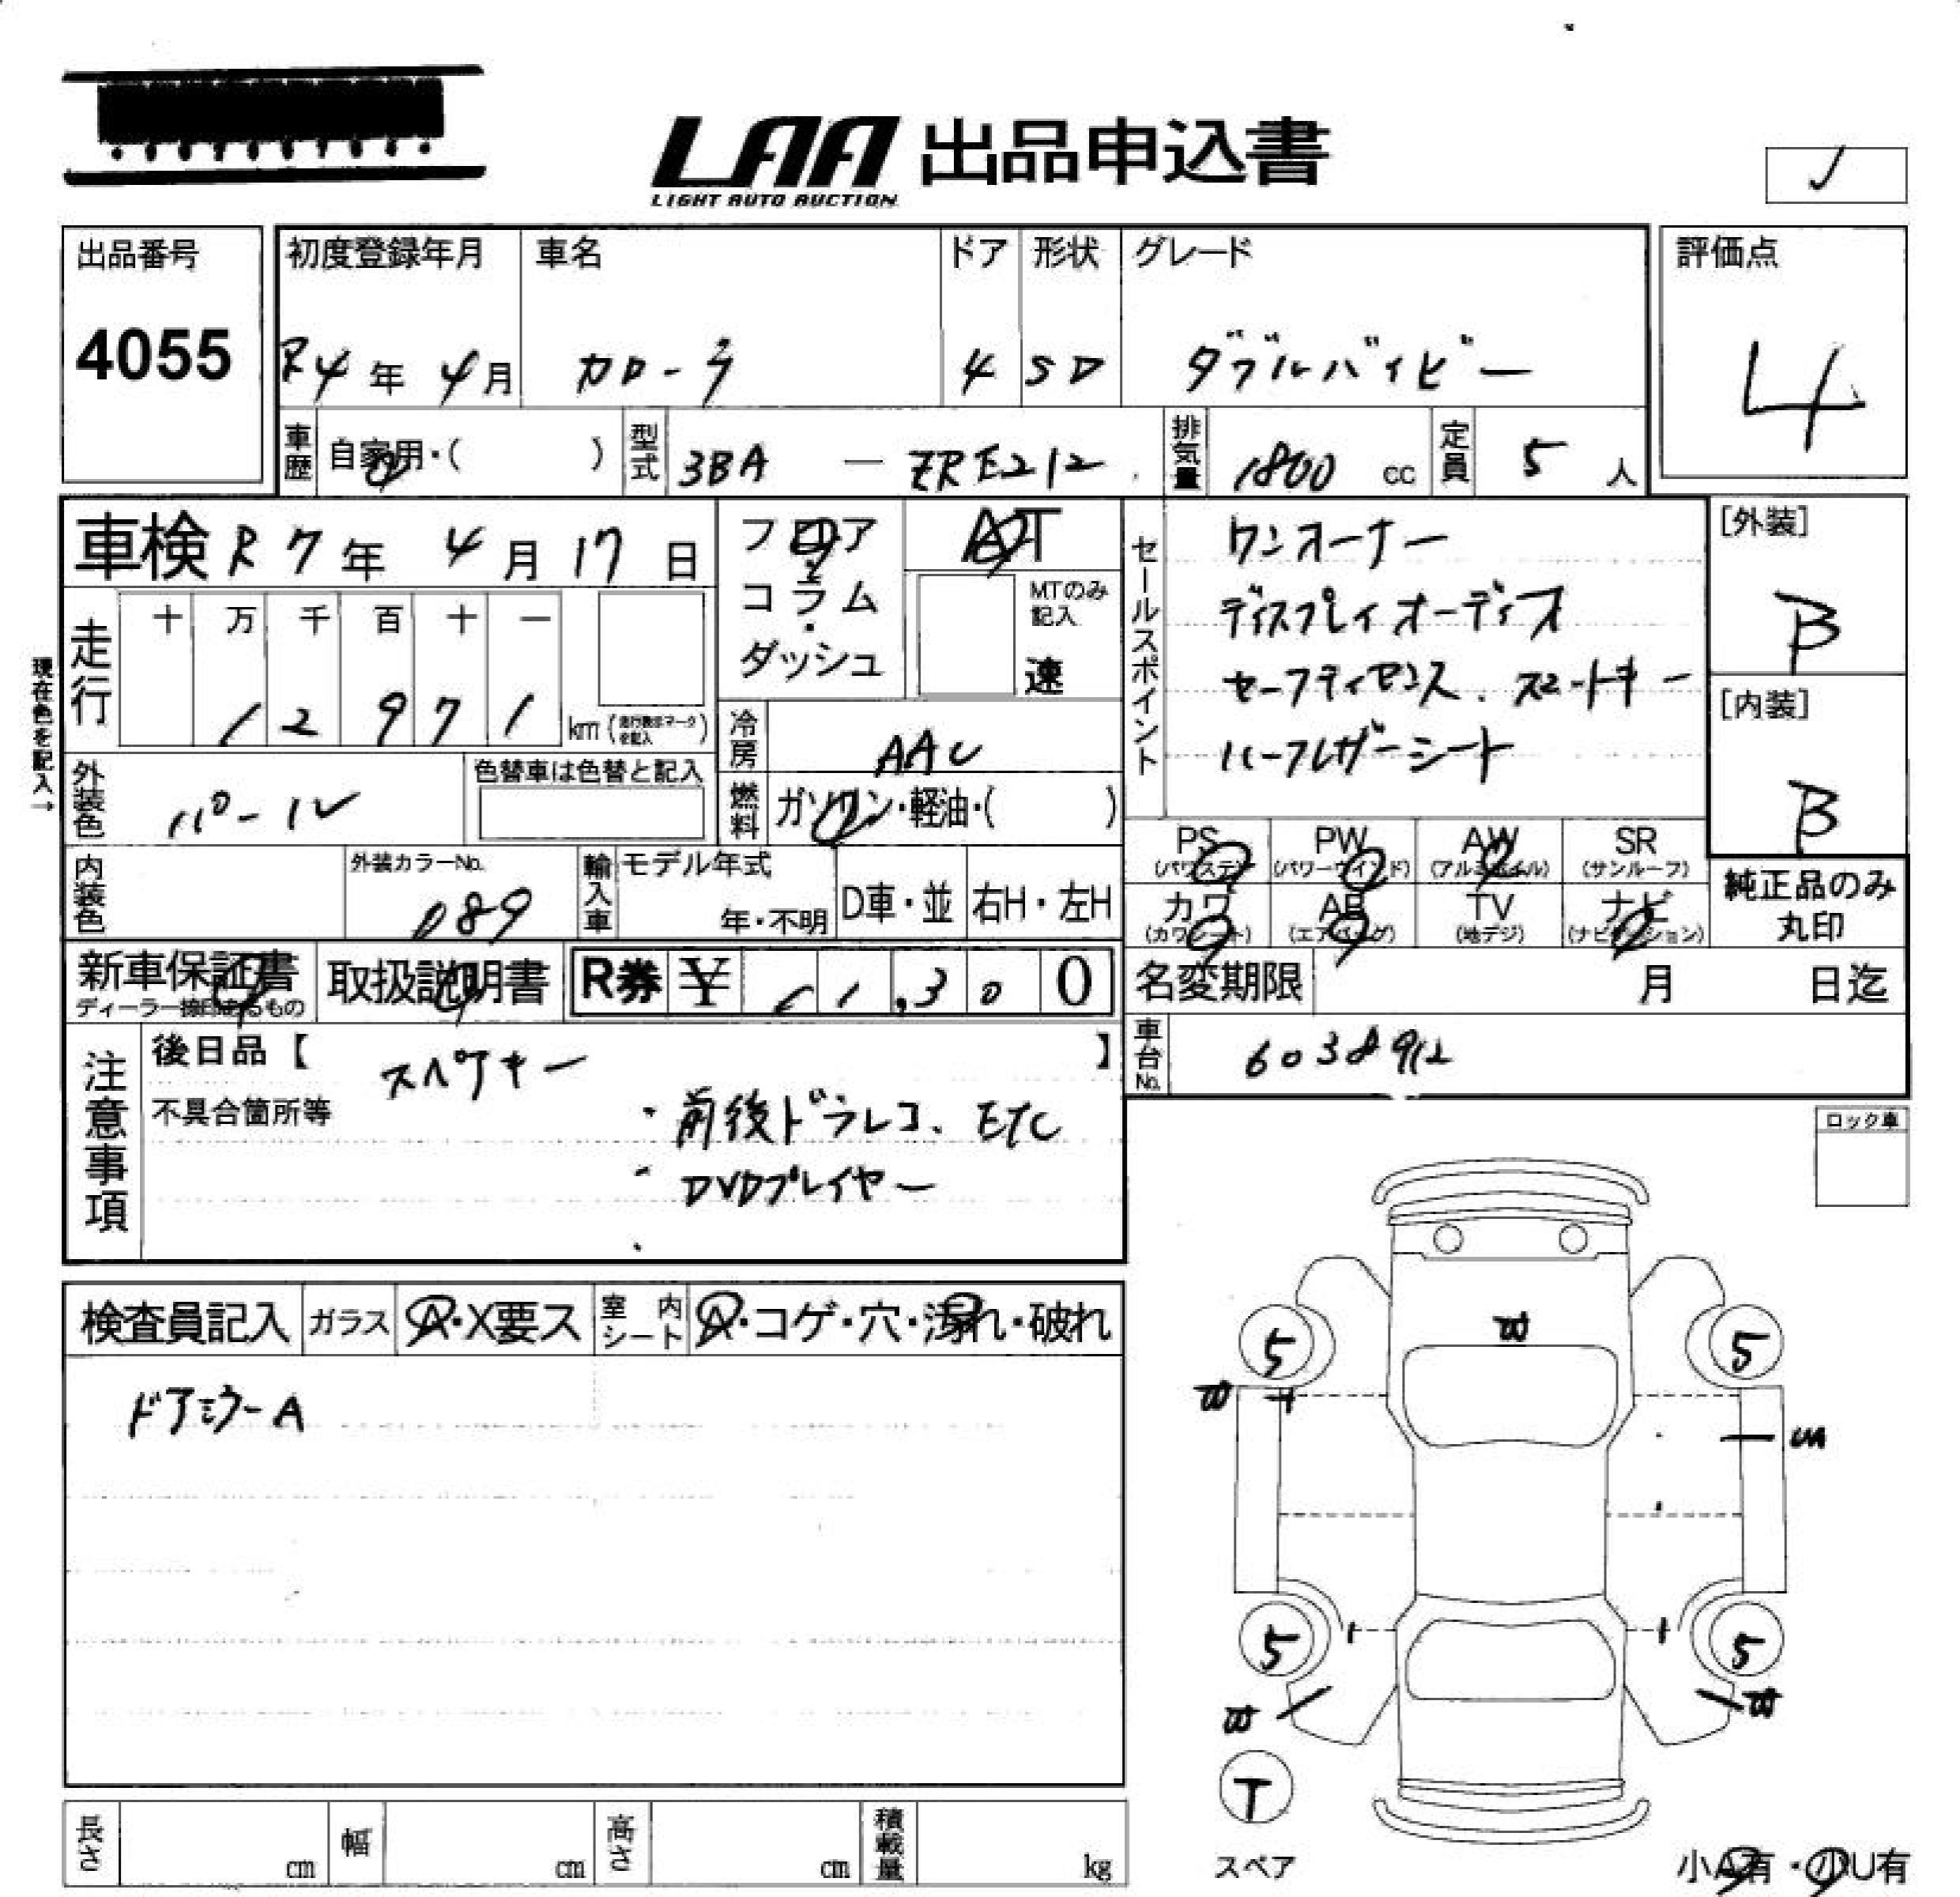 LAA 出品申込書
LIGHT AUTO AUCTION
出品番号
4055
初度登録年月
R4年 4月
車名
カローラ
ドア
4
形状
SD
グレード
ダブルバイビー
評価点
4
車歴 自家用・( )
型式 3BA — ZRE212
排気量 1800 cc
定員 5 人
車検 R7年 4月 17日
現在色を記入→
走行
十 万 千 百 十 一
1 2 9 7 1
km (走行表示マークを記入)
外装色 パール
色替車は色替と記入
内装色
外装カラーNo.
089
輸入車
モデル年式
年・不明
D車・並
右H・左H
フロア・コラム・ダッシュ
AT
MTのみ記入
速
冷房 AAC
燃料 ガソリン・軽油・( )
セールスポイント
ワンオーナー
ディスプレイオーディオ
セーフティセンス. スマートキー
ハーフレザーシート
[外装]
B
[内装]
B
PS (パワステ)
PW (パワーウインド)
AW (アルミホイル)
SR (サンルーフ)
カワ (カワシート)
AB (エアバッグ)
TV (地デジ)
ナビ (ナビゲーション)
純正品のみ丸印
新車保証書
ディーラー捺印あるもの
取扱説明書
R券 ¥ 1 1,3 0 0
名変期限 月 日迄
車台No. 6038912
注意事項
後日品【 スペアキー 】
不具合箇所等
・前後ドラレコ. ETC
・DVDプレイヤー
ロック車
検査員記入
ガラス A・X要ス
室内シート A・コゲ・穴・汚れ・破れ
ドアミラーA
5
5
UA
5
5
T
スペア
小A有・小U有
長さ cm
幅 cm
高さ cm
積載量 kg